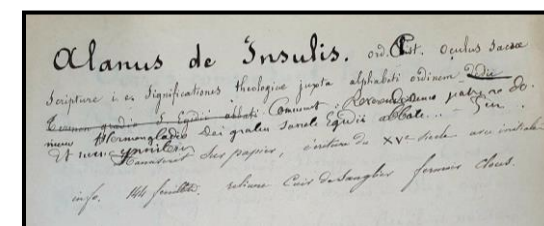 Alanus de Insulis. ord. Cist. Oculus Sacrae
Scripture i. e. Significationes theologice juxta alphabeti ordinem Dedic
Egidii abbati Comment. Reverendissimo patri ac do.
mino Dei gratia Sancti Egidii abbate...
Et
Manuscrit sur papier, écriture du XVe siècle avec initiale
info. 144 feuillets. reliure Cuir de Sanglier fermoir Clous.